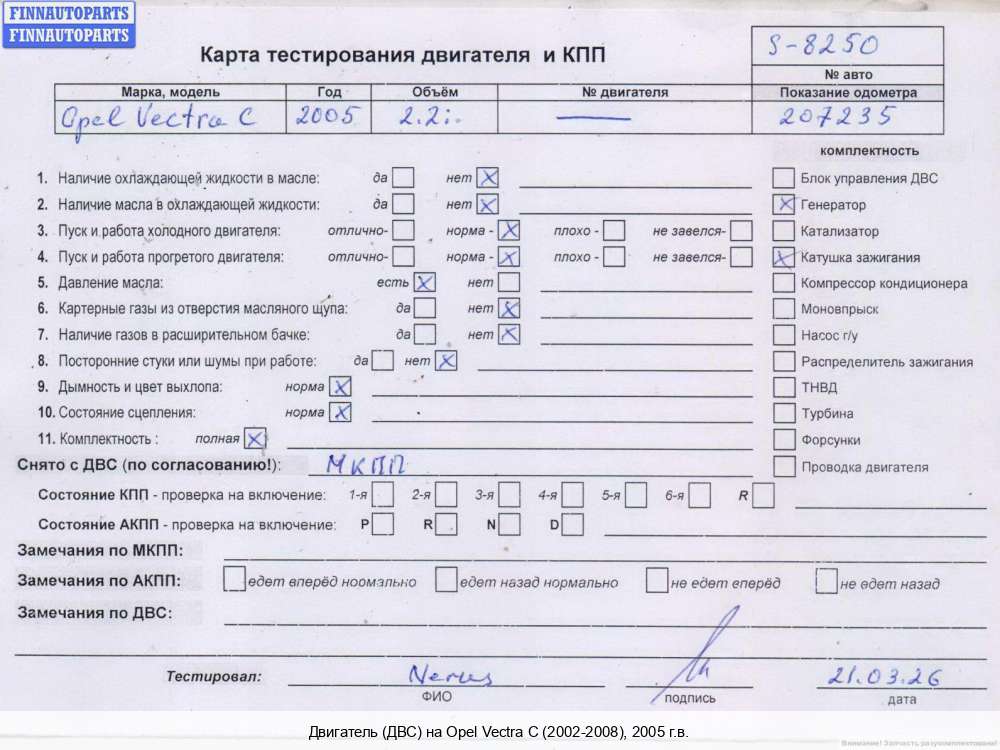 FINNAUTOPARTS
FINNAUTOPARTS
Карта тестирования двигателя и КПП
S-8250
№ авто
Марка, модель Год Объём № двигателя Показание одометра
Opel Vectra C 2005 2.2i. — 207235
комплектность
1. Наличие охлаждающей жидкости в масле: да нет X Блок управления ДВС
2. Наличие масла в охлаждающей жидкости: да нет X X Генератор
3. Пуск и работа холодного двигателя: отлично- норма - X плохо - не завелся- Катализатор
4. Пуск и работа прогретого двигателя: отлично- норма - X плохо - не завелся- X Катушка зажигания
5. Давление масла: есть X нет Компрессор кондиционера
6. Картерные газы из отверстия масляного щупа: да нет X Моновпрыск
7. Наличие газов в расширительном бачке: да нет X Насос г/у
8. Посторонние стуки или шумы при работе: да нет X Распределитель зажигания
9. Дымность и цвет выхлопа: норма X ТНВД
10. Состояние сцепления: норма X Турбина
11. Комплектность : полная X Форсунки
Снято с ДВС (по согласованию!): МКПП Проводка двигателя
Состояние КПП - проверка на включение: 1-я 2-я 3-я 4-я 5-я 6-я R
Состояние АКПП - проверка на включение: P R N D
Замечания по МКПП:
Замечания по АКПП: едет вперёд нормально едет назад нормально не едет вперёд не едет назад
Замечания по ДВС:
Тестировал: 21.03.26
ФИО подпись дата
Двигатель (ДВС) на Opel Vectra C (2002-2008), 2005 г.в.
Внимание! Запчасть разукомплектована!